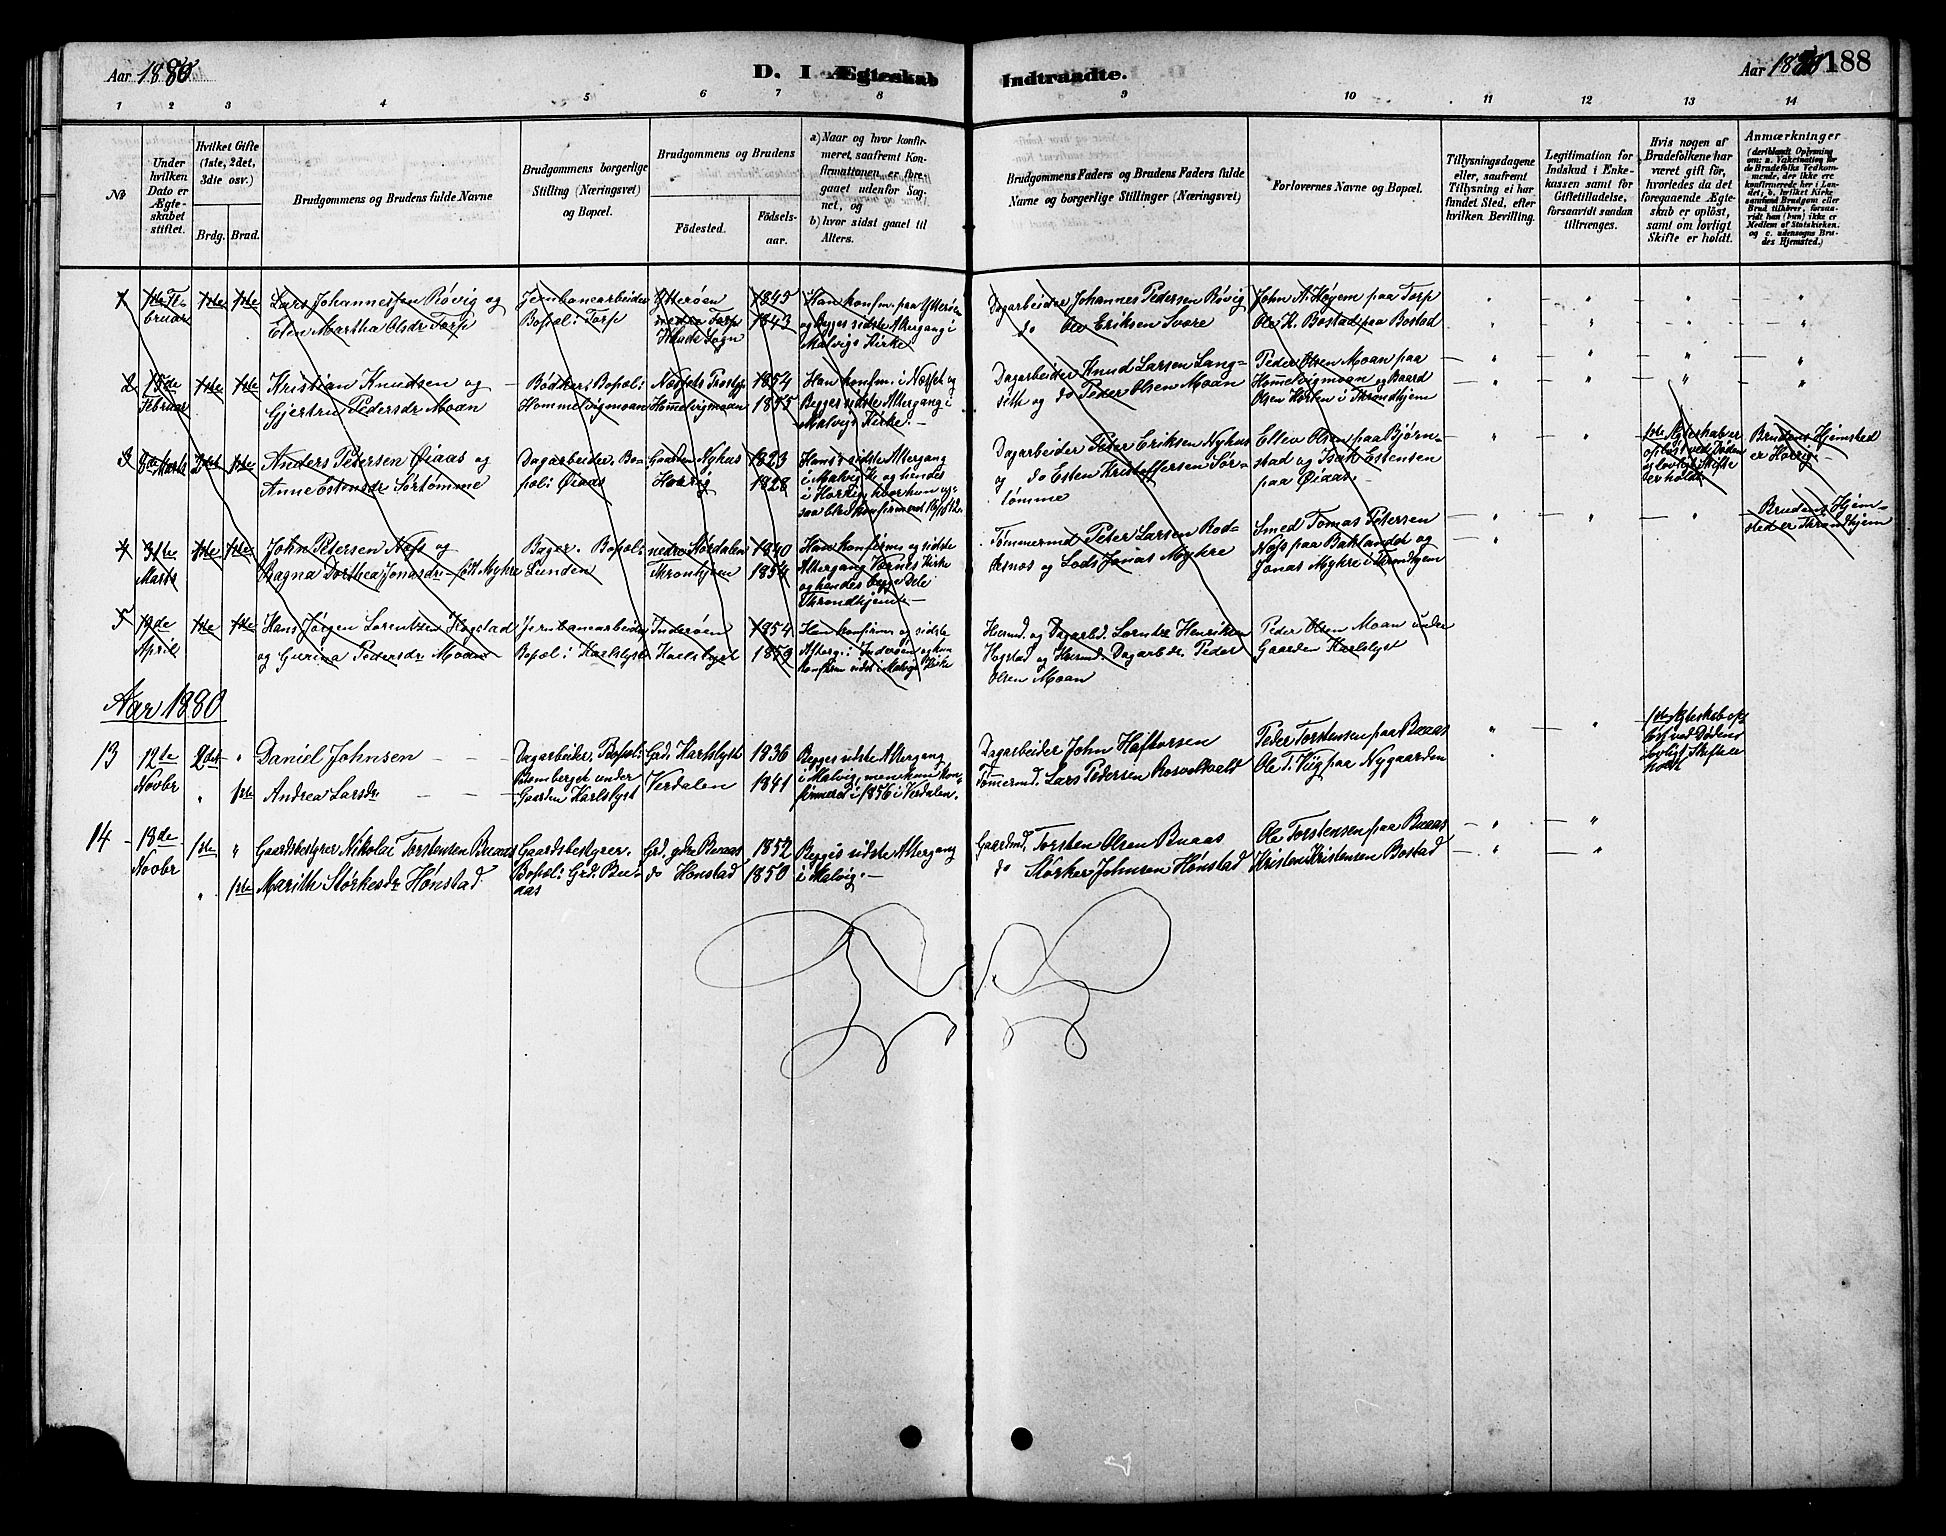 Aar 1880
D. I Ægteskab
Indtraadte.
Aar 1880
188
1 2 3 4 5 6 7 8 9 10 11 12 13 14
No
Under hvilken Dato er Ægteskabet stiftet.
Hvilket Gifte (1ste, 2det, 3die osv.)
Brdg. Brud.
Brudgommens og Brudens fulde Navne
Brudgommens borgerlige Stilling (Næringsvei) og Bopæl.
Brudgommens og Brudens
Födested. Födselsaar.
a) Naar og hvor konfirmeret, saafremt Konfirmationen er foregaaet udenfor Sognet, og
b) hvor sidst gaaet til Alters.
Brudgommens Faders og Brudens Faders fulde Navne og borgerlige Stillinger (Næringsvei)
Forlovernes Navne og Bopæl.
Tillysningsdagene eller, saafremt Tillysning ei har fundet Sted, efter hvilken Bevilling.
Legitimation for Indskud i Enkekassen samt for Giftetilladelse, forsaavidt saadan tiltrænges.
Hvis nogen af Brudefolkene har været gift för, hvorledes da det foregaaende Ægteskab er oplöst, samt om lovligt Skifte er holdt.
Anmærkninger
(deriblandt Oplysning om: a. Vaksination for de Brudefolks Vedkommende, der ikke ere konfirmerede her i Landet; b. hvilket Kirkesamfund Brudgom eller Brud tilhörer, forsaavidt han (hun) ikke er Medlem af Statskirken, og c. udensogns Brudes Hjemsted.)
1 1ste Februar 1ste 1ste Lars Johannessen Rövig og
Elen Martha Olsdr Torp
Jernbanearbeider
Bopæl: Torp
Ytteröen
nedre Torp
1845
1843
Han konfirm. paa Ytteröen
og Begges sidste Altergang i
Malvigs Kirke
Dagarbeider Johannes Pedersen Rövig
do Ole Eriksen Svare
John A. Höyem paa Torp
Ole K. Bostad paa Bostad
2 15de Februar 1ste 1ste Kristian Knudsen og
Gjertru Pedersdr Moan
Bödker. Bopæl:
Hommelvigmoan
Næssets Prestgj.
Hommelvigmoan
1854
1855
Han konfirm. i Næsset og
Begges sidste Altergang i
Malvigs Kirke.
Dagarbeider Knud Larsen Langseth
og do Peder Olsen Moan
Peder Olsen Moan paa
Hommelvigmoan og Baard
Olsen Horten i Throndhjem
3 Marts 1ste Anders Petersen Öiaas og
Anne Estensdr Sörtömme
Dagarbeider. Bopæl: Öiaas
Gaarden Nyhus
Horrig
1823
1828
Hans sidste Altergang
i Malvig K. og hendes
i Horrig, hvor hun ogsaa
blev konfirmeret
Dagarbeider Peter Eriksen Nyhus
og do Esten Kristoffersen Sörtömme
Ellev Olsen paa Bjørnstad
og Isak Estensen
paa Öiaas.
1ste Ægteskab er
oplöst ved Döden
og lovligt Skifte
er holdt
Brudens Hjemsted
er Horrig
4 31te Marts 1ste 1ste John Petersen Næss og
Ragna Dorthea Jonasdr. född Myhre
Bager. Bopæl:
Lunden
nedre Stördalen
Thronhjem
1840
1854
Han konfirmes og sidste
Altergang Værnes Kirke
og hendes begge Dele
Throndhjem
Tömmermd Peter Larsen
og Lods Jonas Myhre
Smed Tomas Petersen
Næss paa Baklandet og
Jonas Myhre i Throndhjem
Brudens Hjemsted
er Throndhjem
5 19de April 1ste 1ste Hans Jörgen Lorentzen Hogstad
og Gurina Pedersdr Moan
Jernbanearbeider
Bopæl: Karlslyst
Inderöen
Karlslyst
1854
1859
Han konfirm. og sidste
Alterg. i Inderöen og hun
konfirm. sidst i Malvigs Kirke
Husmd. og Dagarbd. Lorndtz Henriksen
Hogstad og Husmd. Dagarbdr. Peder
Olsen Moan
Peder Olsen Moan under
Gaarden Karlslyst
Aar 1880
13 12te Novbr 2det " Daniel Johnsen
" 1ste Andrea Larsdr
Dagarbeider. Bopæl:
Blomberget under
Gaarden Karlslyst
Grd. Karlslyst
Verdalen
1836
1841
Begges sidste Altergang
i Malvig, men hun konfirmered
i 1856 i Verdalen.
Dagarbeider John Haftorsen
Tömmermd. Lars Pedersen Rosvoldvald
Peder Torstensen paa Buaas
Ole T. Viig paa Nygaarden
1ste Ægteskab oplöst
ved Döden og
lovligt Skifte er
holdt
14 18de Novbr 1ste " Gaardsbestyrer Nikolai Torstensen Buaas
" 1ste Marith Störkesdr Hönstad
Gaardsbestyrer.
Bopæl: Grd. Buaas
Grd. ydre Buaas
do Hönstad
1852
1850
Begges sidste Altergang
i Malvig.
Gaardmd. Torsten Olsen Buaas
do Störker Johnsen Hönstad
Ole Torstensen paa Buaas
Kristen Kristensen Bostad